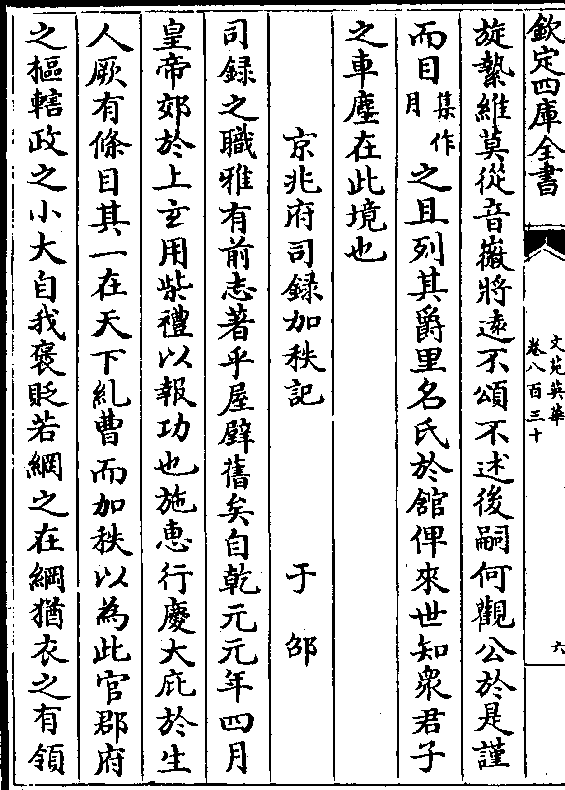 欽定四庫全書
文苑英華
卷八百三十
六
旋縶維莫從音徽將遠不頌不述後嗣何觀公於是謹
而目集作月之且列其爵里名氏於館俾來世知衆君子
之車塵在此境也
京兆府司録加秩記 于邵
司録之職雅有前志著乎屋壁舊矣自乾元元年四月
皇帝郊於上𤣥用柴禮以報功也施恵行慶大庇於生
人厥有條目其一在天下糺曹而加秩以為此官郡府
之樞轄政之小大自我褒貶若網之在綱猶衣之有領